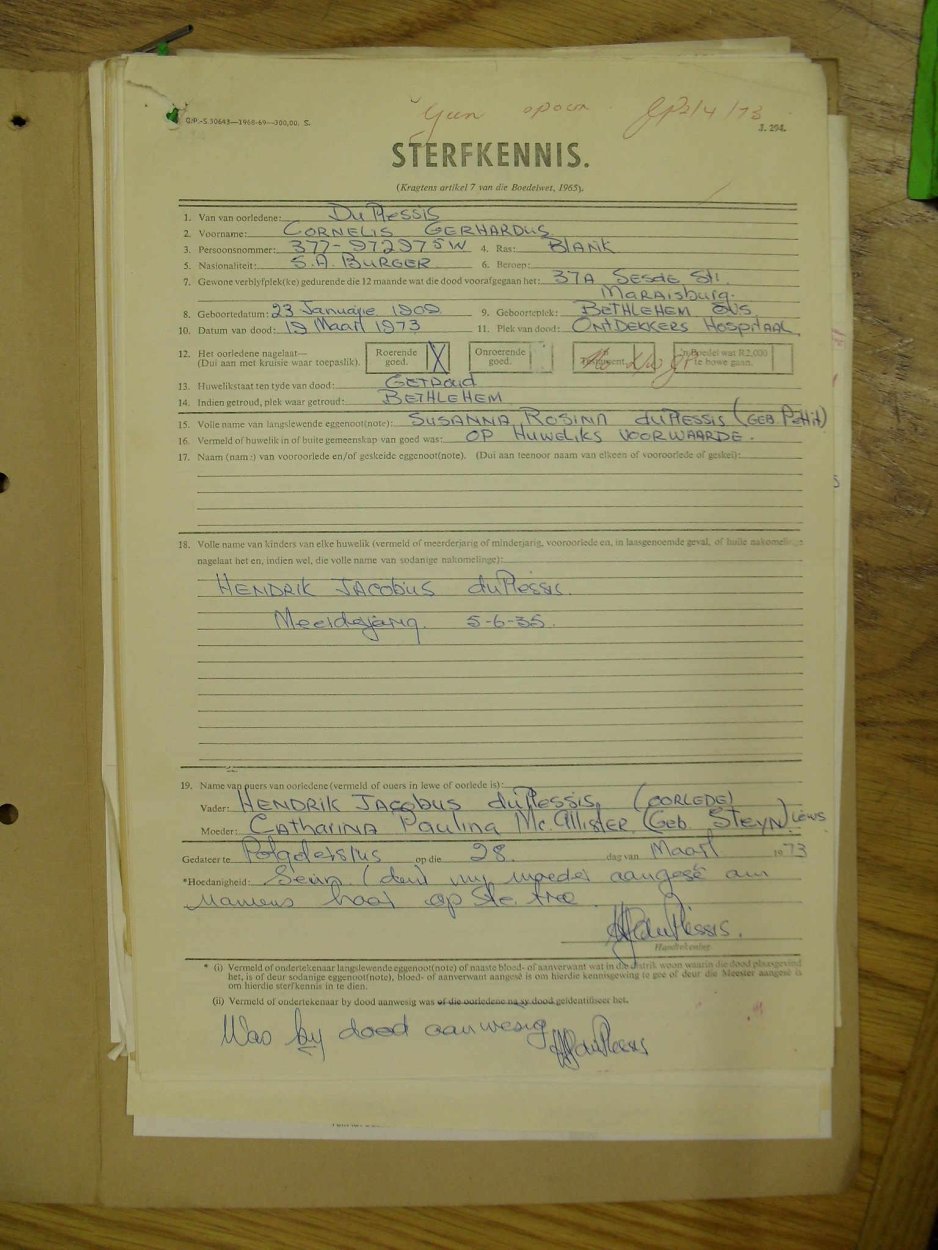 G.P.-S.30643—1968-69—300,00. S.
J. 294.
STERFKENNIS.
(Kragtens artikel 7 van die Boedelwet, 1965).
1. Van van oorledene: Du Plessis
2. Voorname: CORNELIS GERHARDUS
3. Persoonsnommer: 377-972975W 4. Ras: BLANK
5. Nasionaliteit: S.A. BURGER 6. Beroep:
7. Gewone verblyfplek(ke) gedurende die 12 maande wat die dood voorafgegaan het: 37A SESDE St.
MARAISBURG.
8. Geboortedatum: 23 Januarie 1909 9. Geboorteplek: BETHLEHEM OVS
10. Datum van dood: 19 Maart 1973 11. Plek van dood: ONTDEKKERS HOSPITAAL
12. Het oorledene nagelaat—
(Dui aan met kruisie waar toepaslik). Roerende goed. X Onroerende goed. Testament. 'n Boedel wat R2,000 te bowe gaan.
13. Huwelikstaat ten tyde van dood: GETROUD
14. Indien getroud, plek waar getroud: BETHLEHEM
15. Volle name van langslewende eggenoot(note): SUSANNA ROSINA du Plessis (GEB Pettit)
16. Vermeld of huwelik in of buite gemeenskap van goed was: OP HUWELIKS VOORWAARDE.
17. Naam (name) van vooroorlede en/of geskeide eggenoot(note). (Dui aan teenoor naam van elkeen of vooroorlede of geskei):
18. Volle name van kinders van elke huwelik (vermeld of meerderjarig of minderjarig, vooroorlede en, in laasgenoemde geval, of hulle nakomelinge
nagelaat het en, indien wel, die volle name van sodanige nakomelinge):
HENDRIK JACOBUS du Plessis.
Meerderjarig. 5-6-35.
19. Name van ouers van oorledene (vermeld of ouers in lewe of oorlede is):
Vader: HENDRIK JACOBUS du Plessis (OORLEDE)
Moeder: Catharina Paulina Mc. Allister (Geb. STEYN) LEWS
Gedateer te op die 28. dag van Maart 1973
*Hoedanigheid: Seun (deur my moeder aangesê om
namens haar op te tree.
HJ du Plessis.
Handtekening.
* (i) Vermeld of ondertekenaar langslewende eggenoot(note) of naaste bloed- of aanverwant wat in die distrik woon waarin die dood plaasgevind
het, is of deur sodanige eggenoot(note), bloed- of aanverwant aangesê is om hierdie kennisgewing te gee of deur die Meester aangesê is
om hierdie sterfkennis in te dien.
(ii) Vermeld of ondertekenaar by dood aanwesig was of die oorledene na sy dood geïdentifiseer het.
Was by dood aanwesig HJ du Plessis